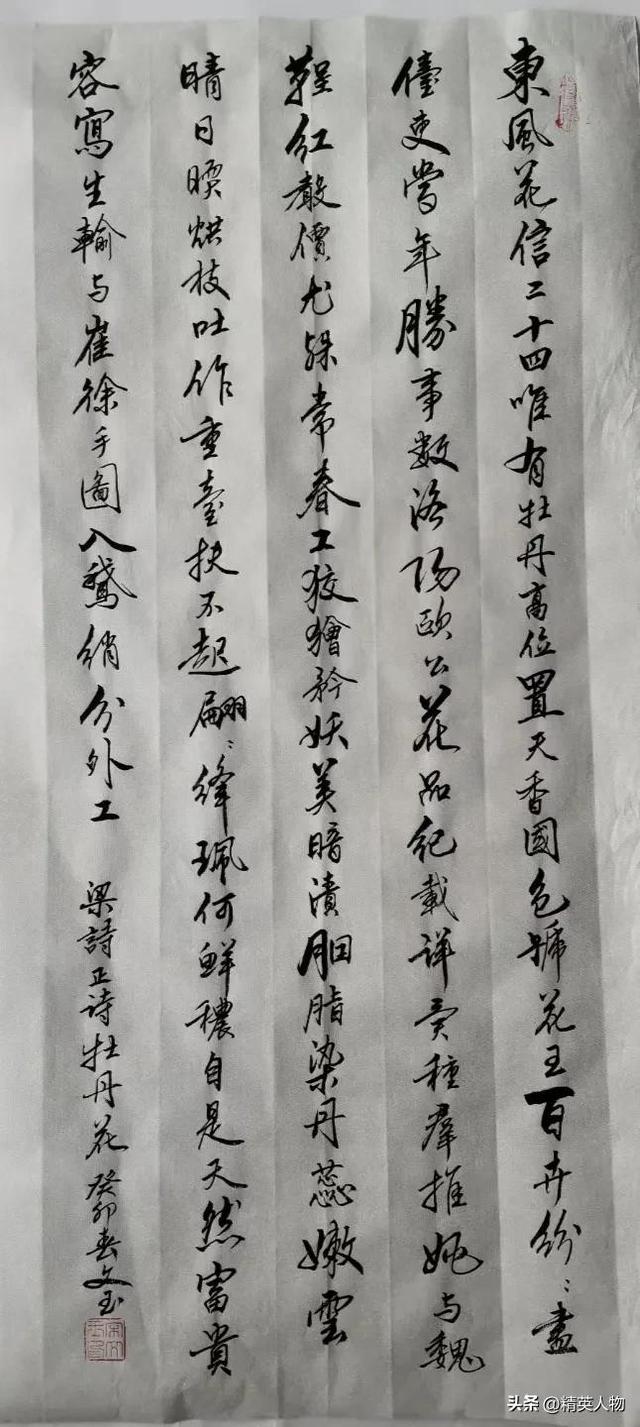 東風花信二十四唯有牡丹高位置天香國色號花王百卉紛〻盡
儓吏當年勝事数洛陽欧公花品紀載詳賣種群推姚与魏
鞓紅聲價尤殊常春工狡獪矜妖美暗漬胭脂染丹蕊嫩雲
晴日暝烘枝吐作重臺扶不起翩〻絳珮何鮮穠自是天然富貴
容寫生輸与崔徐手圖入鵝綃分外工 梁詩正诗牡丹花 癸卯春文玉
头条 @精英人物